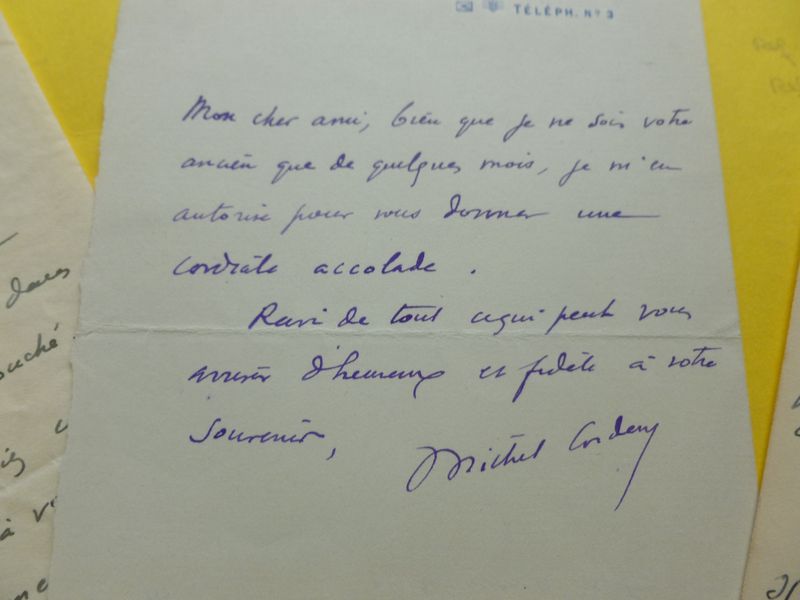 TÉLÉPH. N° 3
Mon cher ami, bien que je ne sois votre
ancien que de quelques mois, je m'en
autorise pour vous donner une
cordiale accolade.
Ravi de tout ce qui peut vous
arriver d'heureux et fidèle à votre
souvenir,
Michel Corday
dans
ouché
à v